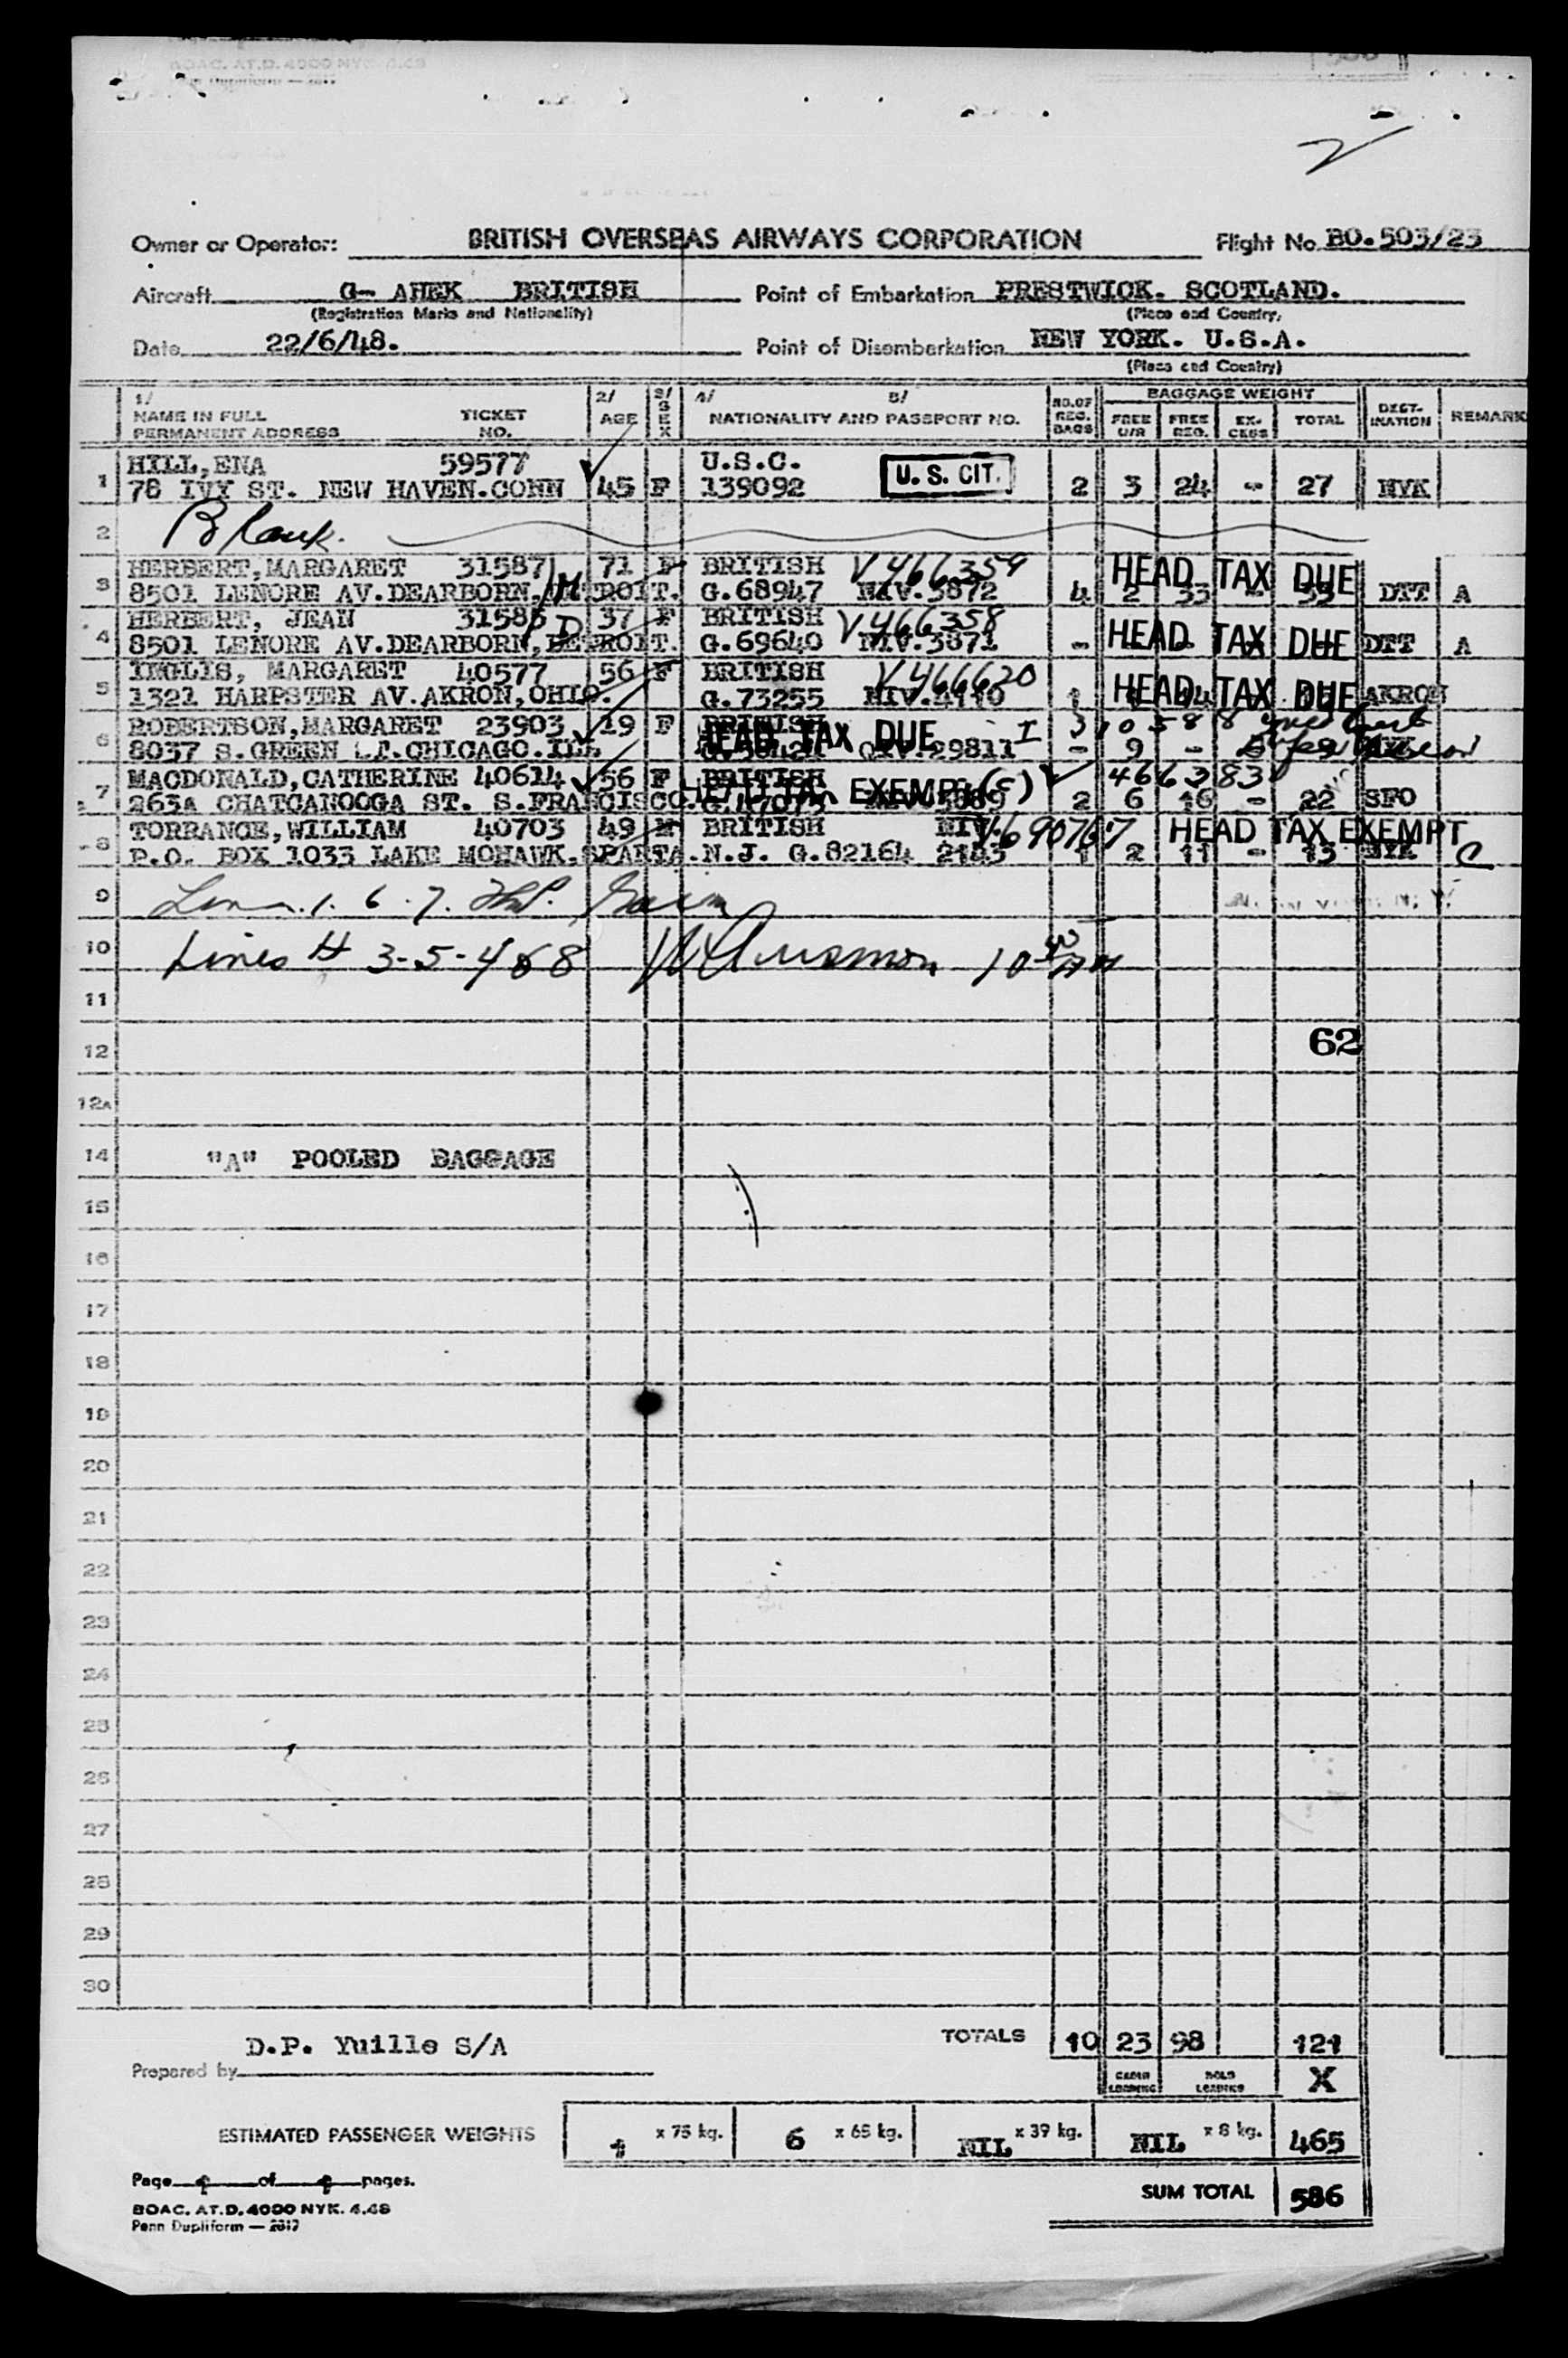 BOAC. AT.D. 4000 NYK 4.48
2
Owner or Operator: BRITISH OVERSEAS AIRWAYS CORPORATION Flight No. BO.503/23
Aircraft G- AHEK BRITISH Point of Embarkation PRESTWICK. SCOTLAND.
(Registration Marks and Nationality) (Place and Country)
Date 22/6/48. Point of Disembarkation NEW YORK. U.S.A.
(Place and Country)
1/ 2/ 3/ 4/ 5/ BAGGAGE WEIGHT
NAME IN FULL TICKET AGE SEX NATIONALITY AND PASSPORT NO. NO.OF REG. BAGS FREE U/R FREE REG. EX-CESS TOTAL DEST-INATION REMARKS
PERMANENT ADDRESS NO.
HILL, ENA 59577 U.S.C.
1 78 IVY ST. NEW HAVEN.CONN 45 F 139092 U.S. CIT. 2 3 24 - 27 NYK
2 Blank.
HERBERT, MARGARET 31587 71 F BRITISH V466359 HEAD TAX DUE
3 8501 LENORE AV.DEARBORN, DETROIT. G.68947 NIV.3872 4 2 33 - 35 DTT A
HERBERT, JEAN 31586 37 F BRITISH V466358
4 8501 LENORE AV.DEARBORN, DETROIT. G.69640 NIV.3871 - HEAD TAX DUE DTT A
INGLIS, MARGARET 40577 56 F BRITISH V466620
5 1321 HARPSTER AV.AKRON,OHIO. G.73255 1 HEAD TAX DUE AKRON
ROBERTSON,MARGARET 23903 19 F BRITISH I 310588
6 8037 S.GREEN ST.CHICAGO.ILL HEAD TAX DUE QIV.29811 - 9 -
MACDONALD,CATHERINE 40614 56 F BRITISH HEAD TAX EXEMPT (C) 466383
7 263A CHATCANOOGA ST. S.FRANCISCO. 2 6 16 - 22 SFO
TORRANCE,WILLIAM 40703 49 M BRITISH NIV. V690767 HEAD TAX EXEMPT
8 P.O. BOX 1033 LAKE MOHAWK.SPARTA.N.J. G.82164 2143 1 2 11 - 13 NYK C
9 1. 6. 7.
10 Lines # 3-5-4 & 8 10 40 AM
11
12 62
12A
14 "A" POOLED BAGGAGE
15
16
17
18
19
20
21
22
23
24
25
26
27
28
29
30
D.P. Yuille S/A TOTALS 10 23 98 121
Prepared by CABIN LOADING HOLD LOADING X
ESTIMATED PASSENGER WEIGHTS 1 x 75 kg. 6 x 65 kg. NIL x 39 kg. NIL x 8 kg. 465
Page of pages.
SUM TOTAL 586
BOAC. AT.D. 4000 NYK. 4.48
Penn Dupliform — 2817